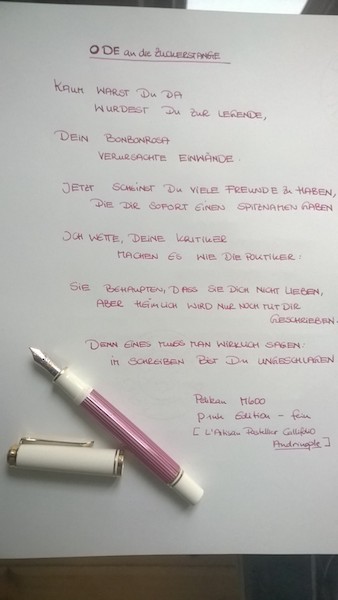 ODE an die ZUCKERSTANGE
KAUM WARST DU DA
WURDEST DU ZUR LEGENDE,
DEIN BONBONROSA
VERURSACHTE EINWÄNDE.
JETZT SCHEINST DU VIELE FREUNDE ZU HABEN,
DIE DIR SOFORT EINEN SPITZNAMEN GABEN
ICH WETTE, DEINE KRITIKER
MACHEN ES WIE DIE POLITIKER:
SIE BEHAUPTEN, DASS SIE DICH NICHT LIEBEN,
ABER HEIMLICH WIRD NUR NOCH MIT DIR
GESCHRIEBEN.
DENN EINES MUSS MAN WIRKLICH SAGEN:
IM SCHREIBEN BIST DU UNGESCHLAGEN
Pelikan M600
pink Edition - fein
[ L'Artisan Pastellier Callifolio
Andrinople ]